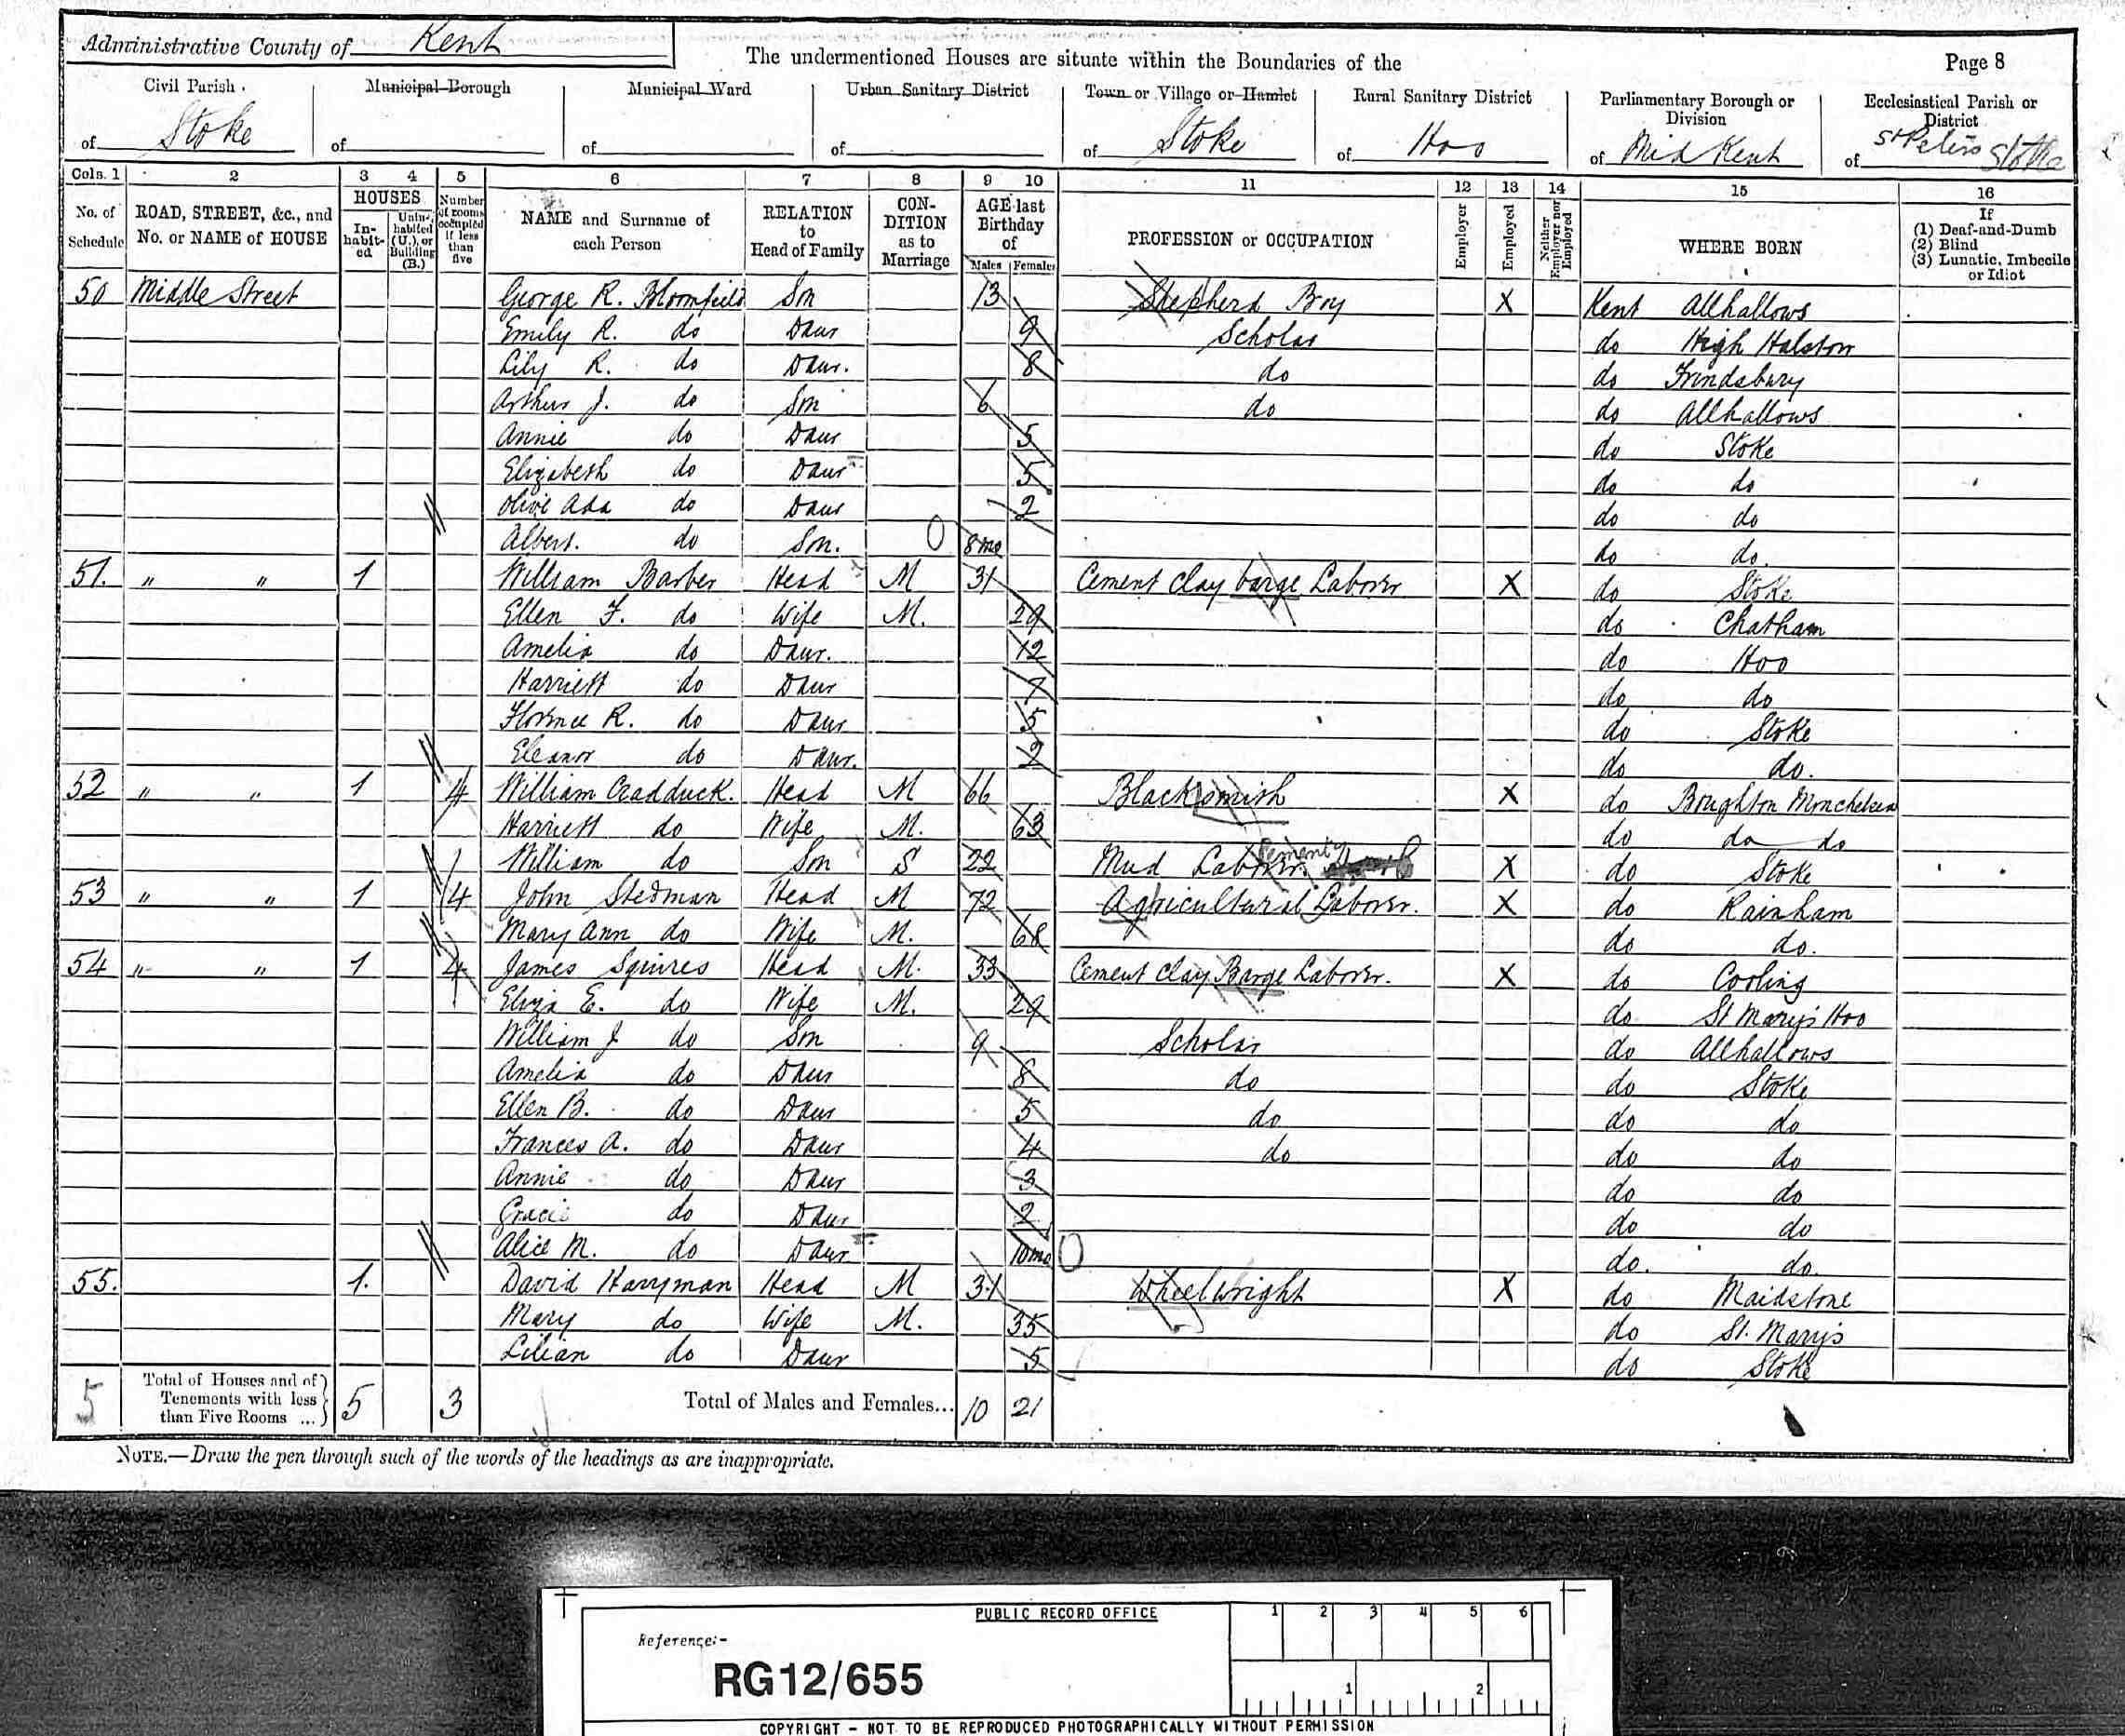 Administrative County of Kent
The undermentioned Houses are situate within the Boundaries of the
Page 8
Civil Parish of Stoke
Municipal Borough of
Municipal Ward of
Urban Sanitary District of
Town or Village or Hamlet of Stoke
Rural Sanitary District of Hoo
Parliamentary Borough or Division of Mid Kent
Ecclesiastical Parish or District of St Peters Stoke
Cols. 1 2 3 4 5 6 7 8 9 10 11 12 13 14 15 16
No. of Schedule
ROAD, STREET, &c., and No. or NAME of HOUSE
HOUSES
In-habit-ed
Unin-habited (U.), or Building (B.)
Number of rooms occupied if less than five
NAME and Surname of each Person
RELATION to Head of Family
CON-DITION as to Marriage
AGE last Birthday of
Males Females
PROFESSION or OCCUPATION
Employer
Employed
Neither Employer nor Employed
WHERE BORN
If
(1) Deaf-and-Dumb
(2) Blind
(3) Lunatic, Imbecile or Idiot
50 Middle Street George R. Bloomfield Son 13 Shepherd Boy X Kent Allhallows
Emily R. do Daur 9 Scholar do High Halston
Lily R. do Daur. 8 do do Frindsbury
Arthur J. do Son 6 do do Allhallows
Annie do Daur 5 do Stoke
Elizabeth do Daur 5 do do
Olive Ada do Daur 2 do do
Albert. do Son. 8 mo do do.
51. " " 1 William Barber Head M 31 Cement Clay barge Laborer X do Stoke
Ellen F. do Wife M. 29 do Chatham
Amelia do Daur. 12 do Hoo
Harriett do Daur 7 do do
Florence R. do Daur 5 do Stoke
Eleanor do Daur. 2 do do.
52 " " 1 4 William Cradduck. Head M 66 Blacksmith X do Boughton Monchelsea
Harriett do Wife M. 63 do do do
William do Son S 22 Mud Laborer Cement X do Stoke
53 " " 1 4 John Stedman Head M 72 Agricultural Laborer. X do Rainham
Mary Ann do Wife M. 68 do do.
54 " " 1 4 James Squires Head M. 33 Cement Clay Barge Laborer. X do Cooling
Eliza E. do Wife M. 29 do St Mary's Hoo
William J do Son 9 Scholar do Allhallows
Amelia do Daur 8 do do Stoke
Ellen B. do Daur 5 do do do
Frances A. do Daur 4 do do do
Annie do Daur 3 do do
Gracie do Daur 2 do do
Alice M. do Daur 10 mo do. do.
55. 1. David Harryman Head M 31 Wheelwright X do Maidstone
Mary do Wife M. 35 do St. Mary's
Lilian do Daur 5 do Stoke
5 Total of Houses and of Tenements with less than Five Rooms ... 5 3 Total of Males and Females... 10 21
NOTE.—Draw the pen through such of the words of the headings as are inappropriate.
PUBLIC RECORD OFFICE
1 2 3 4 5 6
Reference:-
RG12/655
1 2
COPYRIGHT - NOT TO BE REPRODUCED PHOTOGRAPHICALLY WITHOUT PERMISSION